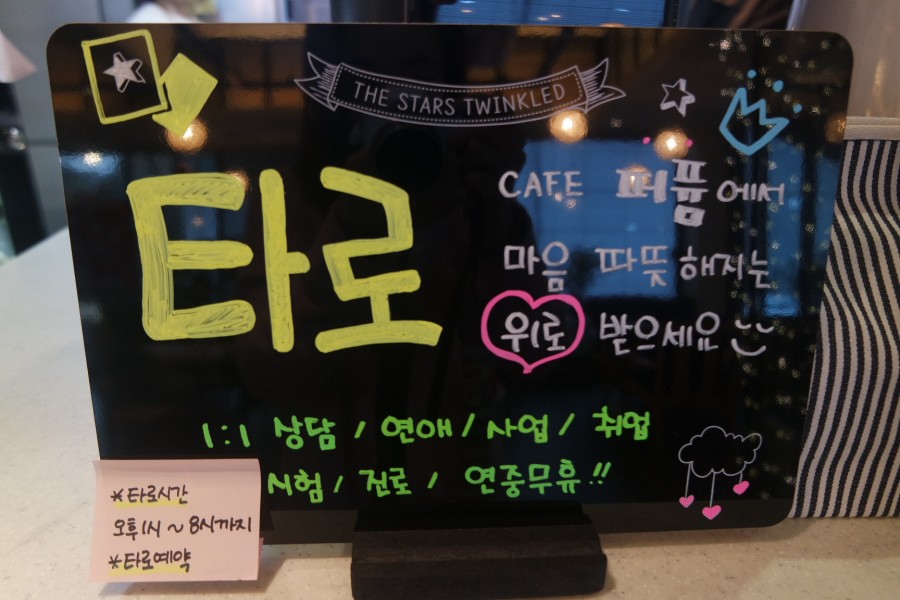 THE STARS TWINKLED
타로
CAFE 퍼퓸에서
마음 따뜻해지는
위로 받으세요
1:1 상담 / 연애 / 사업 / 취업
시험 / 진로 / 연중무휴!!
*타로시간
오후1시~8시까지
*타로예약